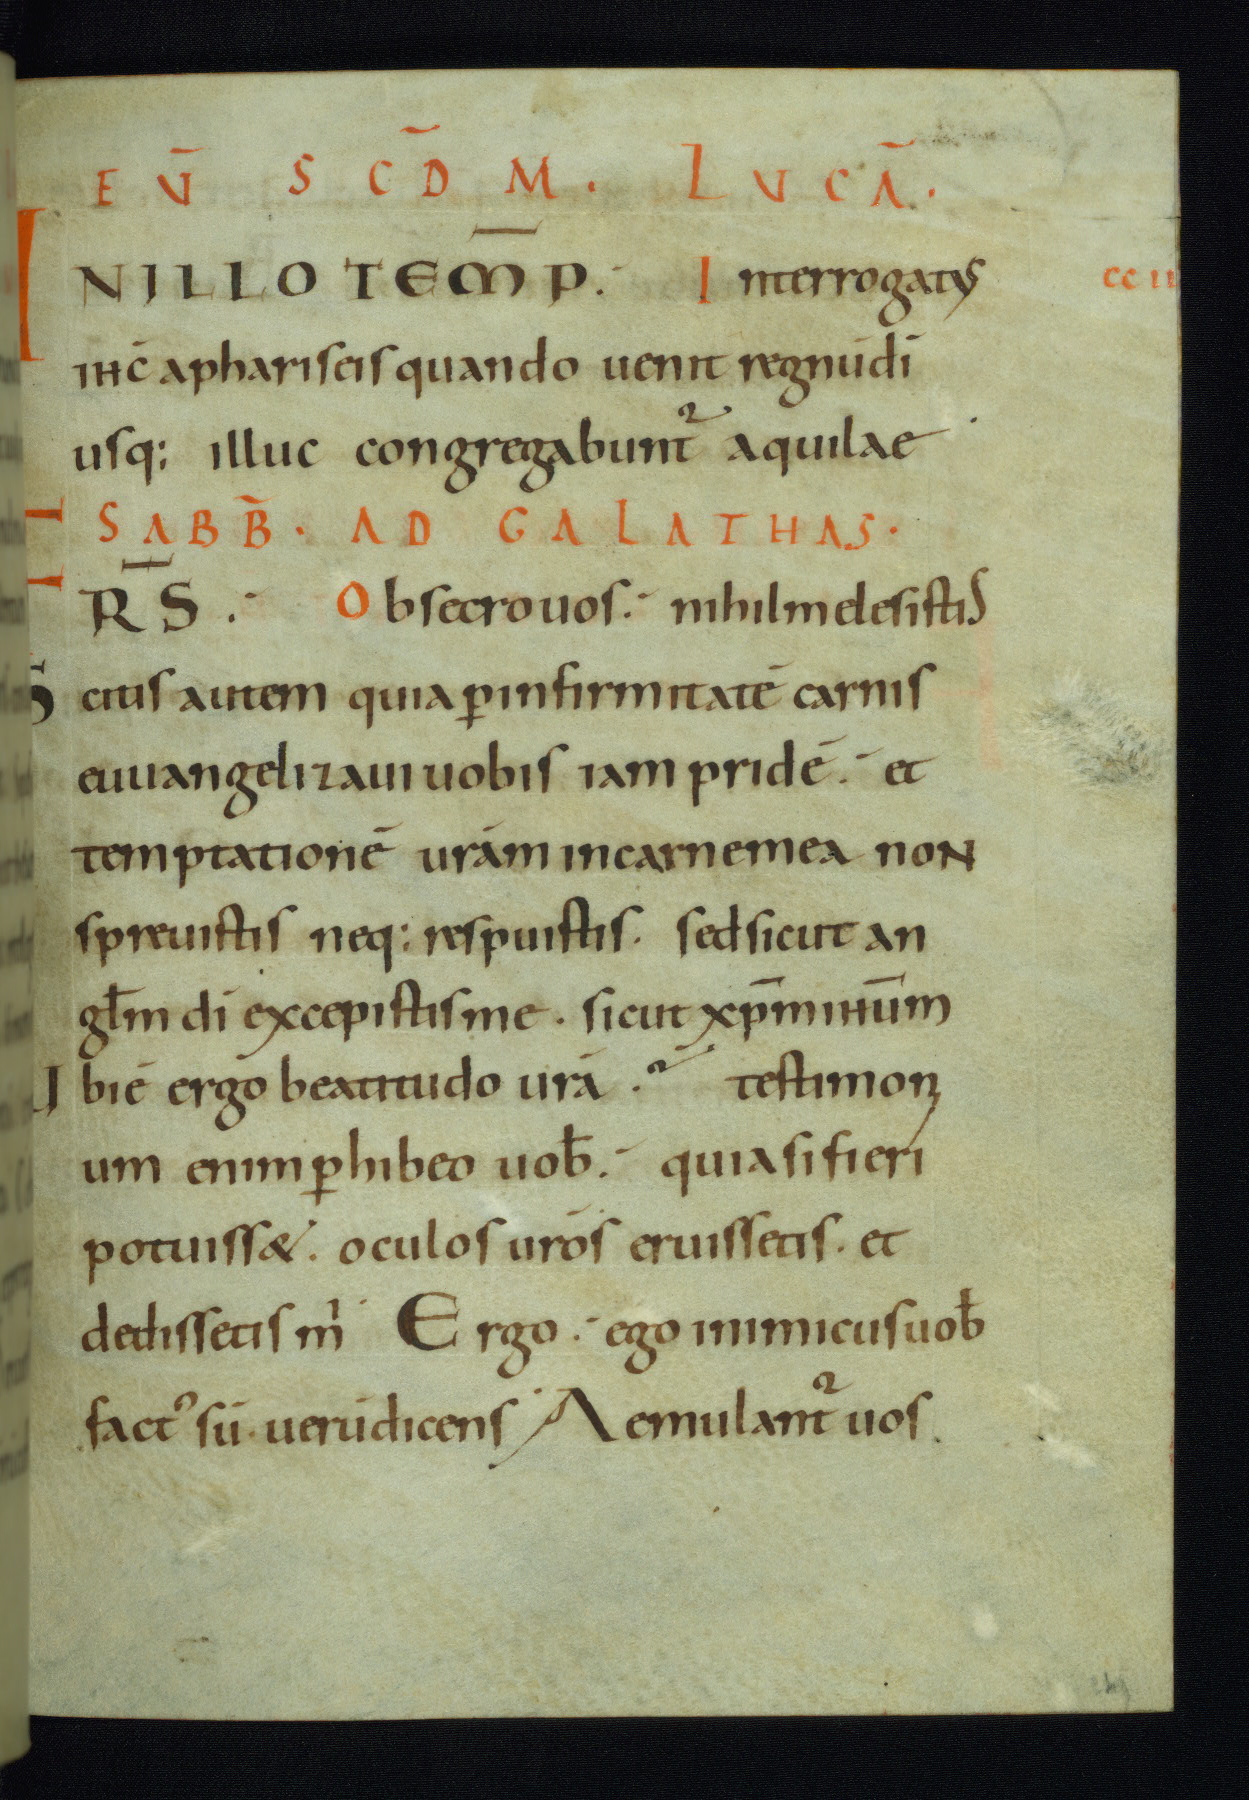 EŪ SCD̄ M. LUCĀ.
INILLO TEM̄P. Interrogatus ccii
ihc̄ a phariseis quando uenit regnū dī
usq; illuc congregabunt᷑ aquilae
SABB̄. AD GALATHAS.
FR̄S. Obsecro uos. nihil me lesistis
Scitis autem quia ꝑ infirmitatē carnis
euuangelizaui uobis iam pridē. et
temptationē urām in carne mea non
spreuistis neq; respuistis. sed sicut an
gl̄m dī excepistis me. sicut xp̄m ihūm
Ubi ē ergo beatitudo urā. testimoni
um enim ꝑhibeo uob̄. quia si fieri
potuiss&. oculos urōs eruissetis. et
dedissetis m̄ Ergo. ego inimicus uob̄
fact᾿ sū. uerū dicens Aemulant᷑ uos.